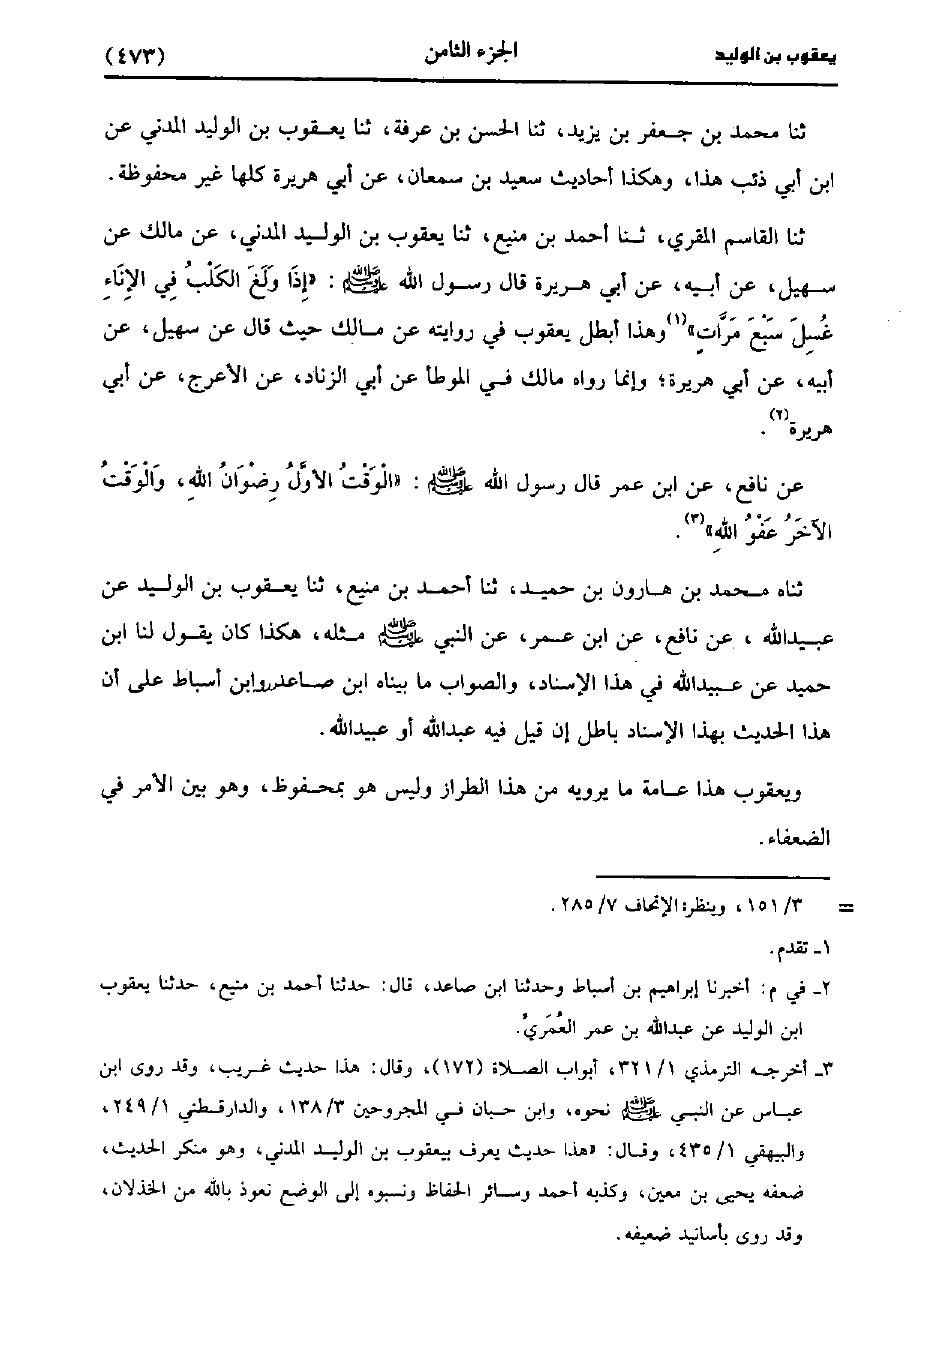 يعقوب بن الوليد الجزء الثامن (٤٧٣)
ثنا محمد بن جعفر بن يزيد، ثنا الحسن بن عرفة، ثنا يعقوب بن الوليد المدني عن
ابن أبي ذئب هذا، وهكذا أحاديث سعيد بن سمعان، عن أبي هريرة كلها غير محفوظة.
ثنا القاسم المقري، ثنا أحمد بن منيع، ثنا يعقوب بن الوليد المدني، عن مالك عن
سهيل، عن أبيه، عن أبي هريرة قال رسول الله ﷺ : «إِذَا وَلَغَ الكَلْبُ فِي الإِنَاءِ
غُسِلَ سَبْعَ مَرَّاتٍ»(١) وهذا أبطل يعقوب في روايته عن مالك حيث قال عن سهيل، عن
أبيه، عن أبي هريرة؛ وإنما رواه مالك في الموطأ عن أبي الزناد، عن الأعرج، عن أبي
هريرة(٢).
عن نافع، عن ابن عمر قال رسول الله ﷺ : «الْوَقْتُ الأَوَّلُ رِضْوَانُ اللهِ، وَالْوَقْتُ
الآخَرُ عَفْوُ اللهِ»(٣).
ثناه محمد بن هارون بن حميد، ثنا أحمد بن منيع، ثنا يعقوب بن الوليد عن
عبيدالله ، عن نافع، عن ابن عمر، عن النبي ﷺ مثله، هكذا كان يقول لنا ابن
حميد عن عبيدالله في هذا الإسناد، والصواب ما بيناه ابن صاعد وابن أسباط على أن
هذا الحديث بهذا الإسناد باطل إن قيل فيه عبدالله أو عبيدالله.
ويعقوب هذا عامة ما يرويه من هذا الطراز وليس هو بمحفوظ، وهو بين الأمر في
الضعفاء.
= ٣/ ١٥١، وينظر: الإتحاف ٧/ ٢٨٥.
١- تقدم.
٢- في م: أخبرنا إبراهيم بن أسباط وحدثنا ابن صاعد، قال: حدثنا أحمد بن منيع، حدثنا يعقوب
ابن الوليد عن عبدالله بن عمر العُمَريُ.
٣- أخرجه الترمذي ١/ ٣٢١، أبواب الصلاة (١٧٢)، وقال: هذا حديث غريب، وقد روى ابن
عباس عن النبي ﷺ نحوه، وابن حبان في المجروحين ٣/ ١٣٨، والدارقطني ١/ ٢٤٩،
والبيهقي ١/ ٤٣٥، وقال: «هذا حديث يعرف بيعقوب بن الوليد المدني، وهو منكر الحديث،
ضعفه يحيى بن معين، وكذبه أحمد وسائر الحفاظ ونسبوه إلى الوضع نعوذ بالله من الخذلان،
وقد روى بأسانيد ضعيفه.